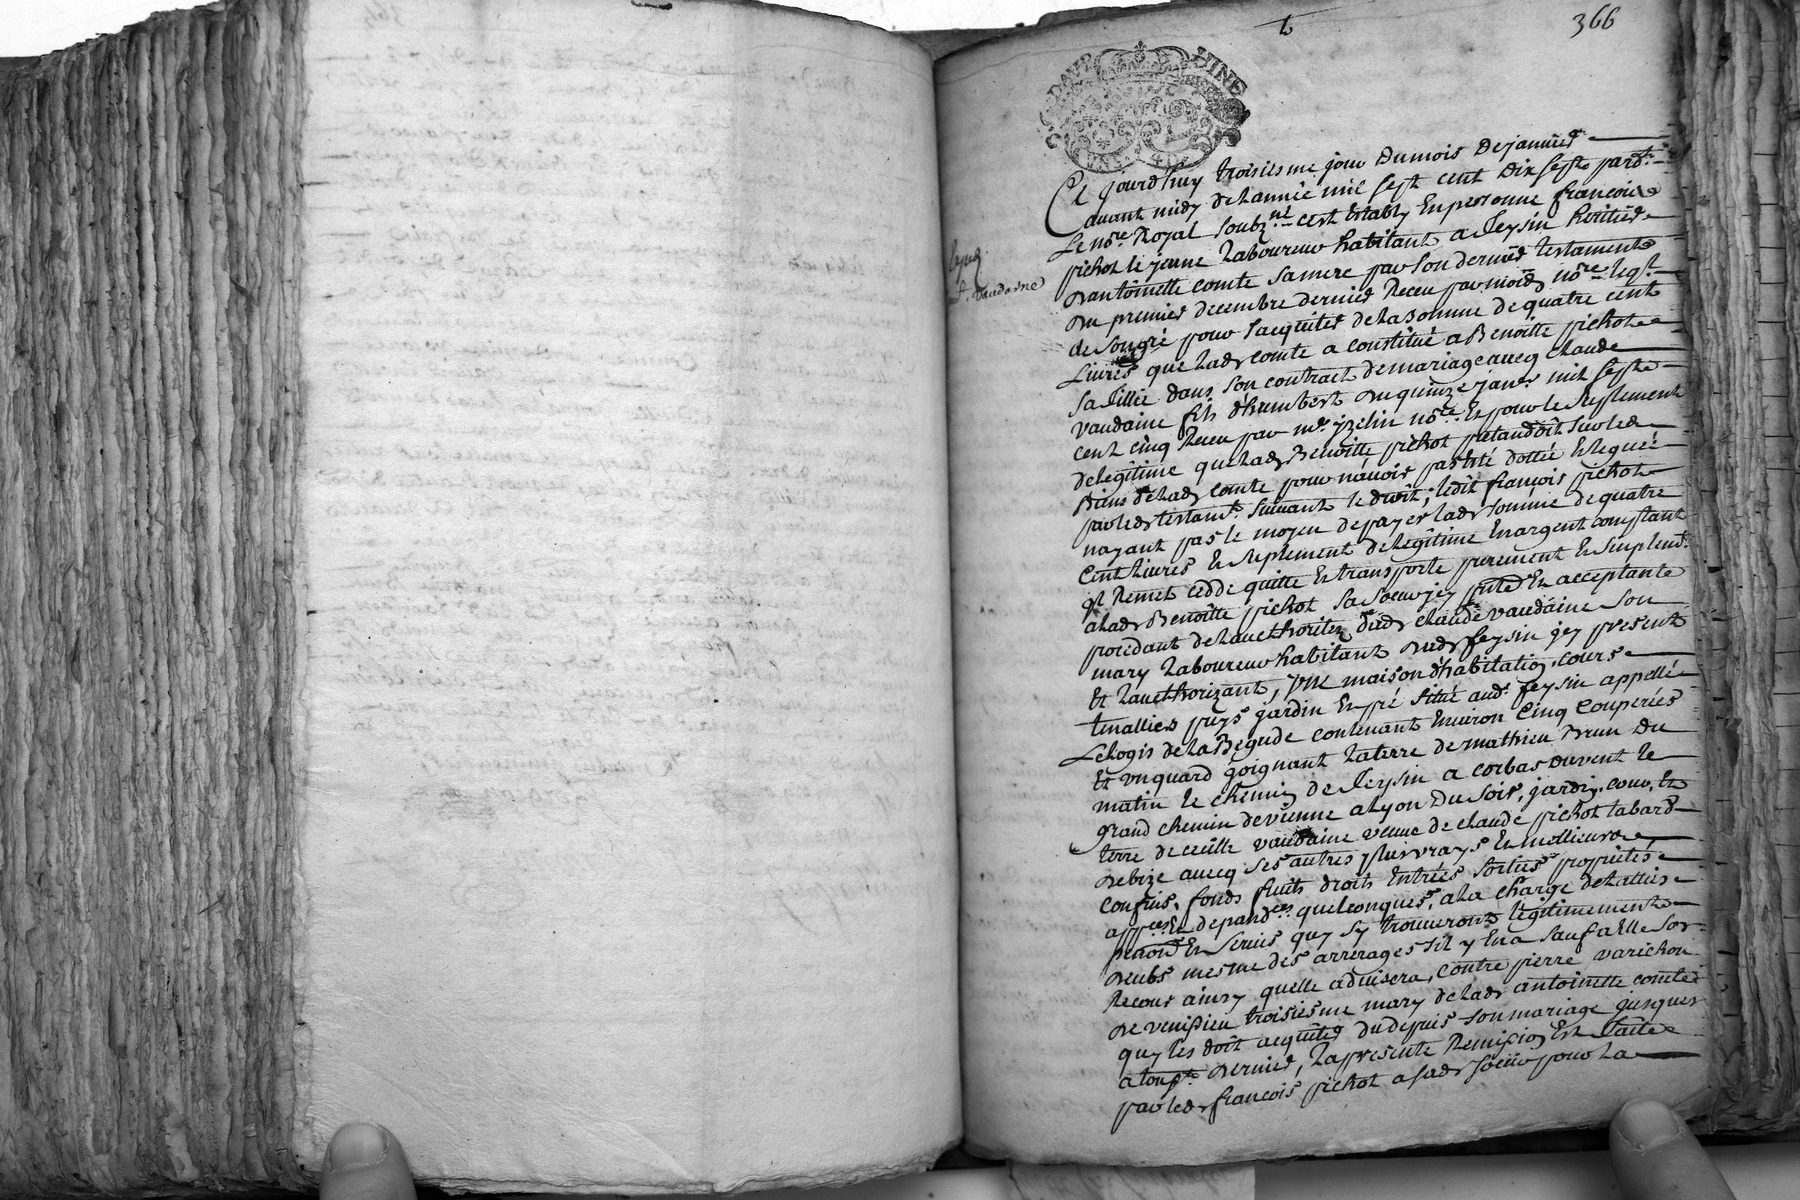 366
DAUPHINE
Ce jourdhuy troisiesme jour du mois de janvier
avant midy de lannée mil sept cent dix sept pard.t
Le no.re Royal soubz.né cest estably en personne francois
pichot le jeune Laboureur habitant a feysin heritier
dantoinette comte sa mere par son dernier testament
du premier decembre dernier Receu par moid. no.re leql
de son gré pour sacquiter de la somme de quatre cent
Livres que lad. comte a constitué a Benoitte pichot
sa fillie dans son contract de mariage avecq claude
vaudaine fils dhumbert du quinze janv.r mil sept
cent cinq Receu par m.e yzelin no.re Et pour le suplement
de legitime que lad. Benoitte pichot pretandoit sur les
Biens de lad. comte pour navoir pas été dottée et leguée
par led. testam.t suivant le droit; ledit françois pichot
nayant pas le moyen de payer lad. somme de quatre
Cent Livres et suplement de legitime en argent comptant
Remet cedde quitte et transporte purement et simplem.t
a lad. Benoitte pichot sa soeur jcy pnte et acceptante
procedant de lauethorité dud. claude vaudaine son
mary Laboureur habitant dud. feysin jcy present
Et Lauethorizant, une maison dhabitation, cours
tinallier puys jardin et pré situé aud. feysin appellé
Le Logis de la Begude contenant environ cinq couperées
Et un quard joignant la terre de mathieu Brun du
matin le chemin de feysin a corbas du vent le
grand chemin de vienne a Lyon du soir, jardin, cour, et
terre de cecille vaudaine veuve de claude pichot tabard
de bize avecq ses autres plus vrays et meilleurs
confins, fonds fruits droits entrées sorties proprietés
app.ces et depand.ces quelconques, a la charge de la
pension et servis quy sy trouveront legitimement
deubs mesme des arrerages sil y en a sauf a elle son
Recour ainsy quelle advisera, contre pierre varichon
de venissieu troisiesme mary de lad. antoinette comte
quy les doit acquiter du depuis son mariage jusques
a dernier, la presente Remission est faite
par led. françois pichot a sad. soeur pour la